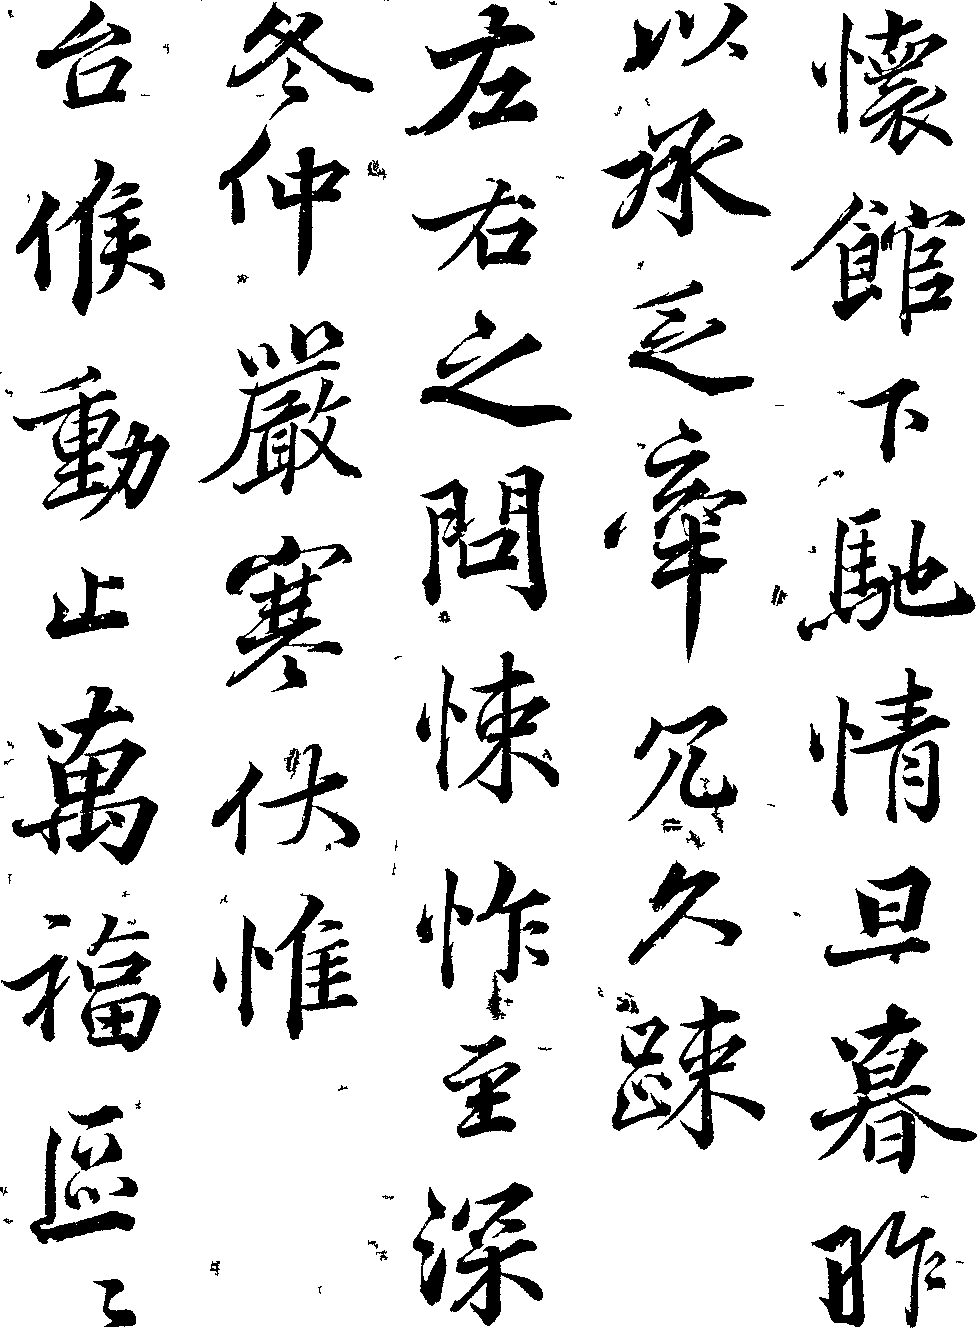 懷館下馳情旦暮昨
以承乏牽冗久踈
左右之問悚怍至深
冬仲嚴寒伏惟
台候動止萬福區〻